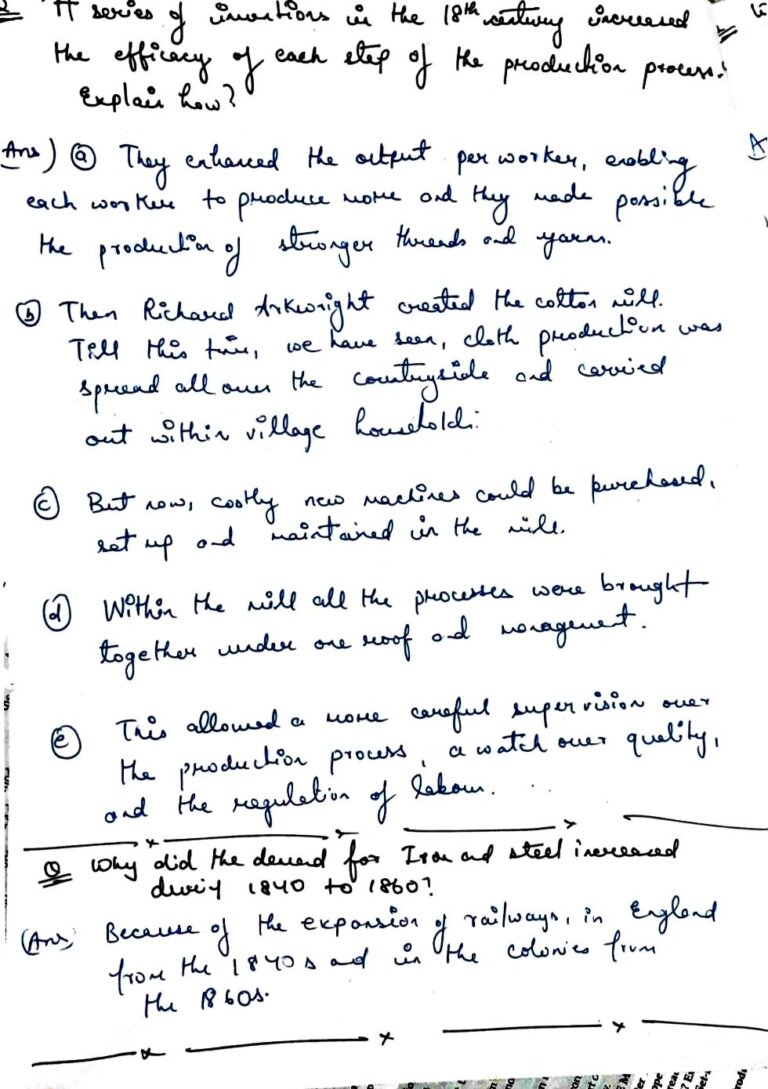 Q "A series of inventions in the 18th century increased
the efficacy of each step of the production process."
Explain how?
Ans) (a) They enhanced the output per worker, enabling
each worker to produce more and they made possible
the production of stronger threads and yarn.
(b) Then Richard Arkwright created the cotton mill.
Till this time, we have seen, cloth production was
spread all over the countryside and carried
out within village households.
(c) But now, costly new machines could be purchased,
set up and maintained in the mill.
(d) Within the mill all the processes were brought
together under one roof and management.
(e) This allowed a more careful supervision over
the production process, a watch over quality,
and the regulation of labour.
Q Why did the demand for Iron and steel increased
during 1840 to 1860?
(Ans) Because of the expansion of railways, in England
from the 1840s and in the colonies from
the 1860s.